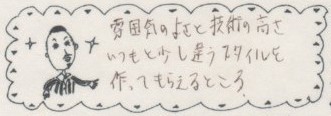 雰囲気のよさと技術の高さ
いつもと少し違うスタイルを
作ってもらえるところ